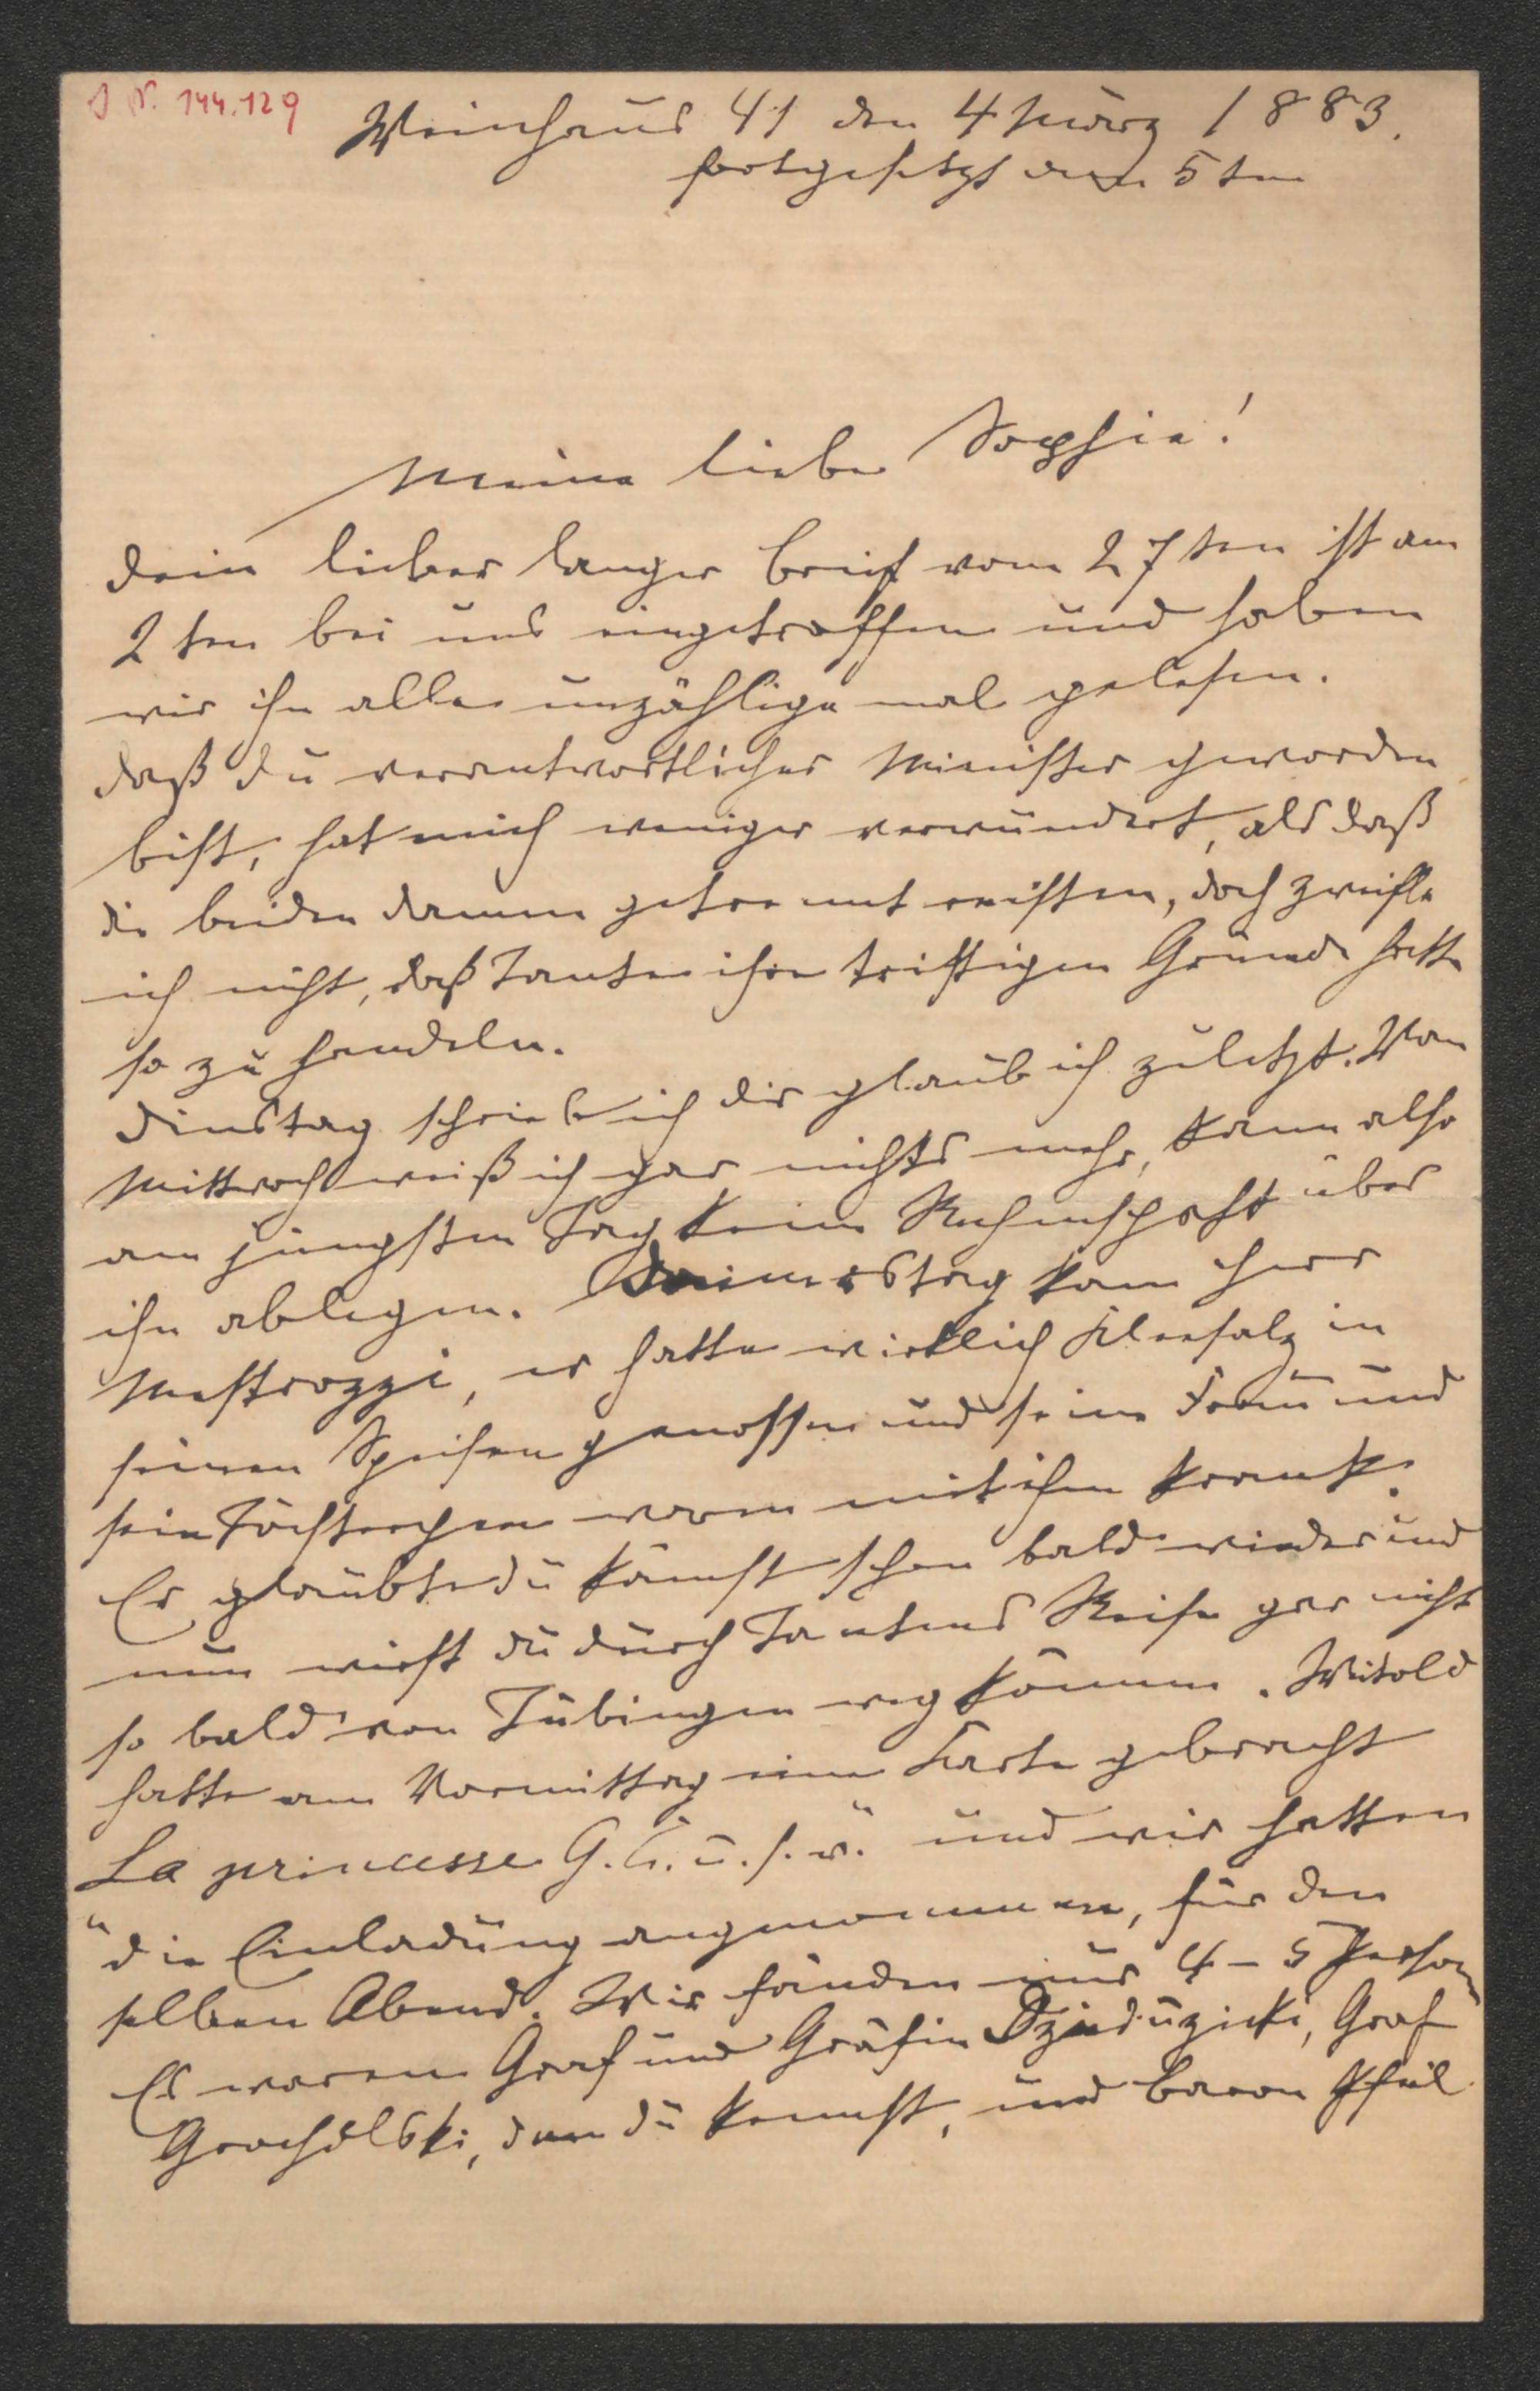 J. N. 144.129
Weinhaus 41 den 4 März 1883.
fortgesetzt den 5ten
Meine liebe Sophie!
Dein lieber langer Brief vom 27ten ist am
2ten bei uns eingetroffen und haben
wir ihn alle unzählige mal gelesen.
Daß du verantwortlicher Minister geworden
bist, hat mich weniger verwundert, als daß
die beiden Damen getrennt reisten, doch zweifle
ich nicht, daß Tante ihre triftigen Gründe hatte
so zu handeln.
Dinstag schrieb ich dir glaub ich zuletzt. Von
Mittwoch weiß ich gar nichts mehr, kann also
am jüngsten Tag keine Rechenschaft über
ihn ablegen. kam Herr
Mestrozzi, er hatte wirklich Kleesalz in
seinen Speisen genossen und seine Frau und
sein Töchterchen waren mit ihm krank.
Er glaubte du kämst schon bald wieder und
nun wirst du durch Tantens Reise gar nicht
so bald von Tübingen weg können. Witold
hatte am Vormittag eine Karte gebracht
La princesse G. C. u. s. w." und wir hatten
"die Einladung angenommen, für den
selben Abend. Wir fanden nur 4-5 Person
Es waren Graf und Gräfin Dzieduzicki, Graf
Grocholski, den du kennst, und Baron Pfeil